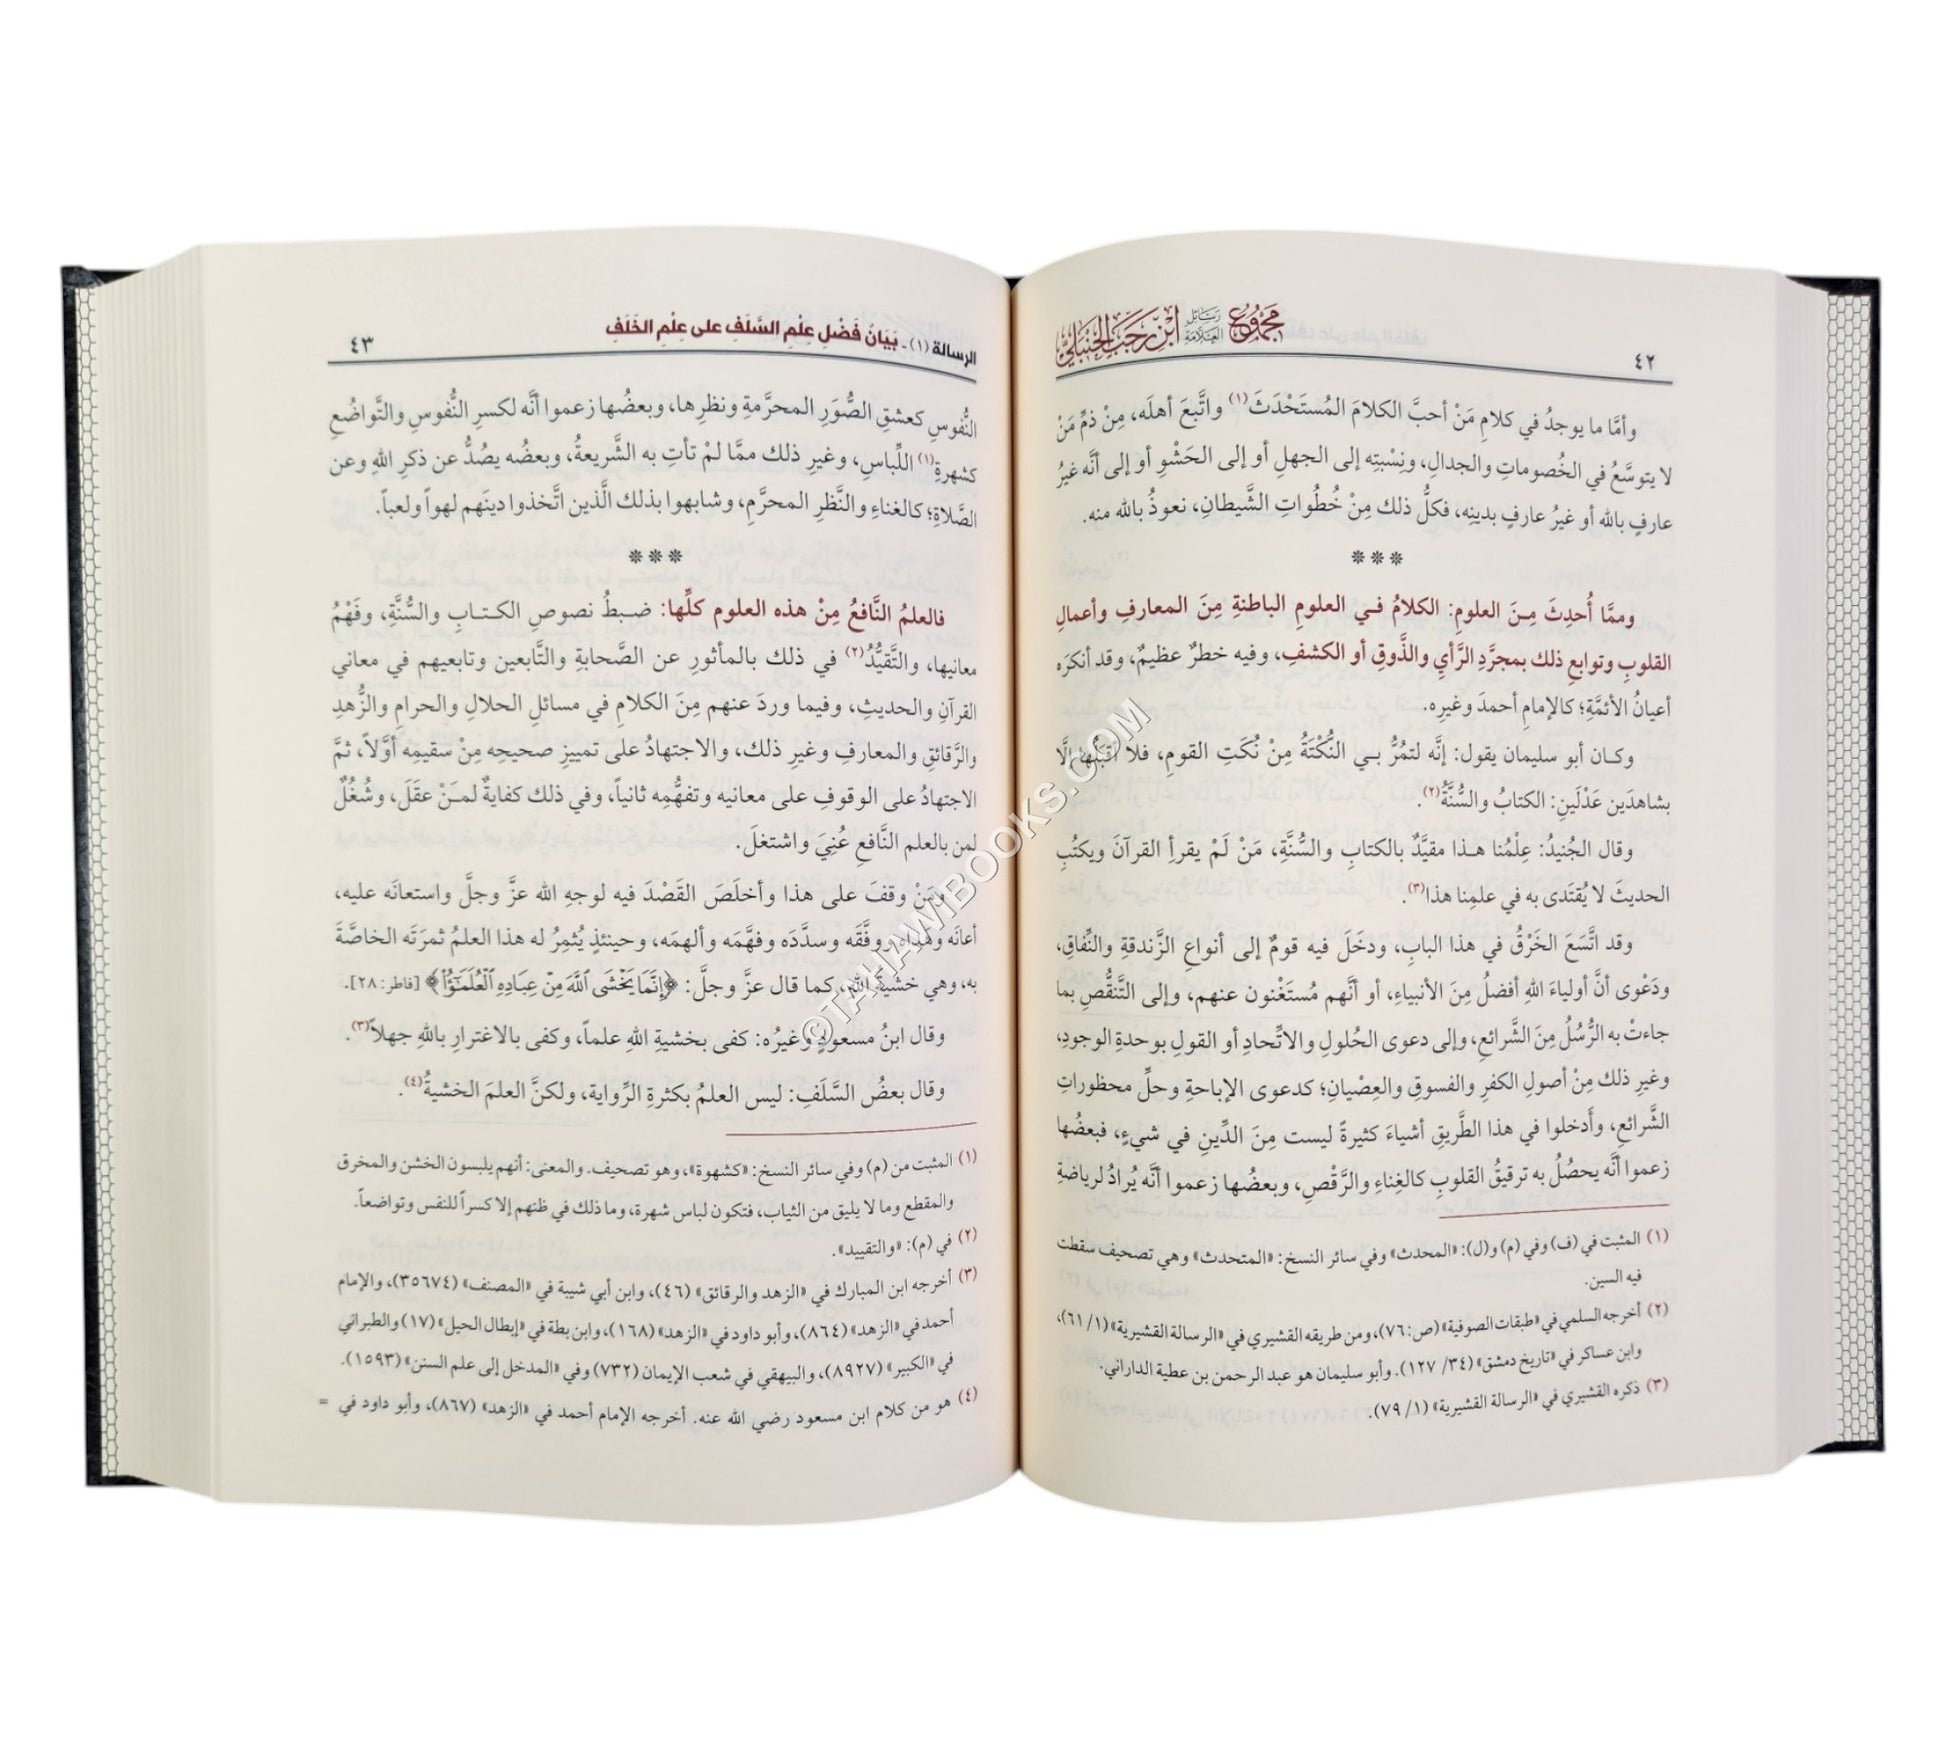 ٤٢
مجموع رسائل العلامة ابن رجب الحنبلي
وأمَّا ما يوجدُ في كلامِ مَنْ أحبَّ الكلامَ المُستَحْدَثَ(١) واتَّبعَ أهلَه، مِنْ ذمِّ مَنْ
لا يتوسَّعُ في الخُصوماتِ والجدالِ، ونِسْبتِه إلى الجهلِ أو إلى الحَشْوِ أو إلى أنَّه غيرُ
عارفٍ بالله أو غيرُ عارفٍ بدينِه، فكلُّ ذلك مِنْ خُطُواتِ الشَّيطانِ، نعوذُ بالله منه.
***
وممَّا أُحدِثَ مِـنَ العلومِ: الكلامُ فـي العلومِ الباطنةِ مِنَ المعارفِ وأعمالِ
القلوبِ وتوابعِ ذلك بمجرَّدِ الرَّأيِ والذَّوقِ أو الكشفِ، وفيه خطرٌ عظيمٌ، وقد أنكرَه
أعيانُ الأئمَّةِ؛ كالإمامِ أحمدَ وغيرِه.
وكـان أبو سليمان يقول: إنَّه لتمُرُّ بـي النُّكْتَةُ مِنْ نُكَتِ القومِ، فلا أقبَلُها إلَّا
بشاهدَين عَدْلَينِ: الكتابُ والسُّنَّةُ(٢).
وقال الجُنيدُ: عِلْمُنا هـذا مقيَّدٌ بالكتابِ والسُّنَّةِ، مَنْ لَمْ يقرأِ القرآنَ ويكتُبِ
الحديثَ لا يُقتَدى به في علمِنا هذا(٣).
وقد اتَّسَعَ الخَرْقُ في هذا البابِ، ودخَلَ فيه قومٌ إلى أنواعِ الزَّندقةِ والنِّفاقِ،
ودَعْوى أنَّ أولياءَ اللهِ أفضلُ مِنَ الأنبياءِ، أو أنَّهم مُستَغْنون عنهم، وإلى التَّنقُّصِ بما
جاءتْ به الرُّسُلُ مِنَ الشَّرائعِ، وإلى دعوى الحُلولِ والاتِّحادِ أو القولِ بوحدةِ الوجودِ،
وغيرِ ذلك مِنْ أصولِ الكفرِ والفسوقِ والعِصْيانِ؛ كدعوى الإباحةِ وحلِّ محظوراتِ
الشَّرائعِ، وأَدخلوا في هذا الطَّريقِ أشياءَ كثيرةً ليست مِنَ الدِّينِ في شيءٍ، فبعضُها
زعموا أنَّه يحصُلُ به ترقيقُ القلوبِ كالغِناءِ والرَّقْصِ، وبعضُها زعموا أنَّه يُرادُ لرياضةِ
(١) المثبت في (ف) وفي (م) و(ل): «المحدث» وفي سائر النسخ: «المتحدث» وهي تصحيف سقطت
فيه السين.
(٢) أخرجه السلمي في «طبقات الصوفية» (ص: ٧٦)، ومن طريقه القشيري في «الرسالة القشيرية» (١/ ٦١)،
وابن عساكر في «تاريخ دمشق» (٣٤/ ١٢٧). وأبو سليمان هو عبد الرحمن بن عطية الداراني.
(٣) ذكره القشيري في «الرسالة القشيرية» (١/ ٧٩).
الرسالة (١) - بَيَانُ فَضْلِ عِلْمِ السَّلَفِ على عِلْمِ الخَلَفِ
٤٣
النُّفوسِ كعشقِ الصُّوَرِ المحرَّمةِ ونظرِها، وبعضُها زعموا أنَّه لكسرِ النُّفوسِ والتَّواضُعِ
كشهرةِ(١) اللِّباسِ، وغيرِ ذلك ممَّا لمْ تأتِ به الشَّريعةُ، وبعضُه يصُدُّ عن ذكرِ اللهِ وعن
الصَّلاةِ؛ كالغناءِ والنَّظرِ المحرَّمِ، وشابهوا بذلك الَّذين اتَّخذوا دينَهم لهواً ولعباً.
***
فالعلمُ النَّافعُ مِنْ هذه العلوم كلِّها: ضـبطُ نصوصِ الكـتـابِ والسُّنَّةِ، وفَهْمُ
معانيها، والتَّقيُّدُ(٢) في ذلك بالمأثورِ عن الصَّحابةِ والتَّابعين وتابعيهم في معاني
القرآنِ والحديثِ، وفيما وردَ عنهم مِنَ الكلامِ في مسائلِ الحلالِ والحرامِ والزُّهدِ
والرَّقائقِ والمعارفِ وغيرِ ذلك، والاجتهادُ على تمييزِ صحيحِه مِنْ سقيمِه أوَّلاً، ثمَّ
الاجتهادُ على الوقوفِ على معانيه وتفهُّمِه ثانياً، وفي ذلك كفايةٌ لمـنْ عقَلَ، وشُغُلٌ
لمن بالعلم النَّافعِ عُنِيَ واشتغلَ.
ومَنْ وقفَ على هذا وأخلَصَ القَصْدَ فيه لوجهِ الله عزَّ وجلَّ واستعانَه عليه،
أعانَه وهداه ووفَّقَه وسدَّدَه وفهَّمَه وألهمَه، وحينئذٍ يُثمِرُ له هذا العلمُ ثمرتَه الخاصَّةَ
به، وهي خشيةُ اللهِ، كما قال عزَّ وجلَّ: ﴿إِنَّمَا يَخْشَى ٱللَّهَ مِنْ عِبَادِهِ ٱلْعُلَمَٰٓؤُاْ﴾ [فاطر: ٢٨].
وقال ابنُ مسعودٍ وغيرُه: كفى بخشيةِ اللهِ علماً، وكفى بالاغترارِ باللهِ جهلاً(٣).
وقال بعضُ السَّلَفِ: ليس العلمُ بكثرةِ الرِّواية، ولكنَّ العلمَ الخشيةُ(٤).
(١) المثبت من (م) وفي سائر النسخ: «كشهوة»، وهو تصحيف. والمعنى: أنهم يلبسون الخشن والمخرق
والمقطع وما لا يليق من الثياب، فتكون لباس شهرة، وما ذلك في ظنهم إلا كسراً للنفس وتواضعاً.
(٢) في (م): «والتقييد».
(٣) أخرجه ابن المبارك في «الزهد والرقائق» (٤٦)، وابن أبي شيبة في «المصنف» (٣٥٦٧٤)، والإمام
أحمد في «الزهد» (٨٦٤)، وأبو داود في «الزهد» (١٦٨)، وابن بطة في «إبطال الحيل» (١٧) والطبراني
في «الكبير» (٨٩٢٧)، والبيهقي في شعب الإيمان (٧٣٢) وفي «المدخل إلى علم السنن» (١٥٩٣).
(٤) هو من كلام ابن مسعود رضي الله عنه. أخرجه الإمام أحمد في «الزهد» (٨٦٧)، وأبو داود في =
©TAHAWIBOOKS.COM